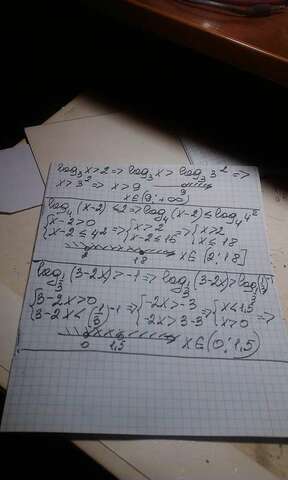 log₃x>2=>log₃x>log₃3²=>
x>3²=>x>9
9
x∈(9;+∞)
log₄(x-2)≤2=>log₄(x-2)≤log₄4²
{x-2>0 {x-2≤4² => {x>2 {x-2≤16 => {x>2 {x≤18
2 18 x∈(2;18]
log₁/₃(3-2x)>-1=>log₁/₃(3-2x)>log₁/₃(1/3)⁻¹
{3-2x>0 {3-2x<(1/3)⁻¹ => {-2x>-3 {-2x>3-3 => {x<1,5 {x>0 =>
0 1,5 x∈(0;1,5)